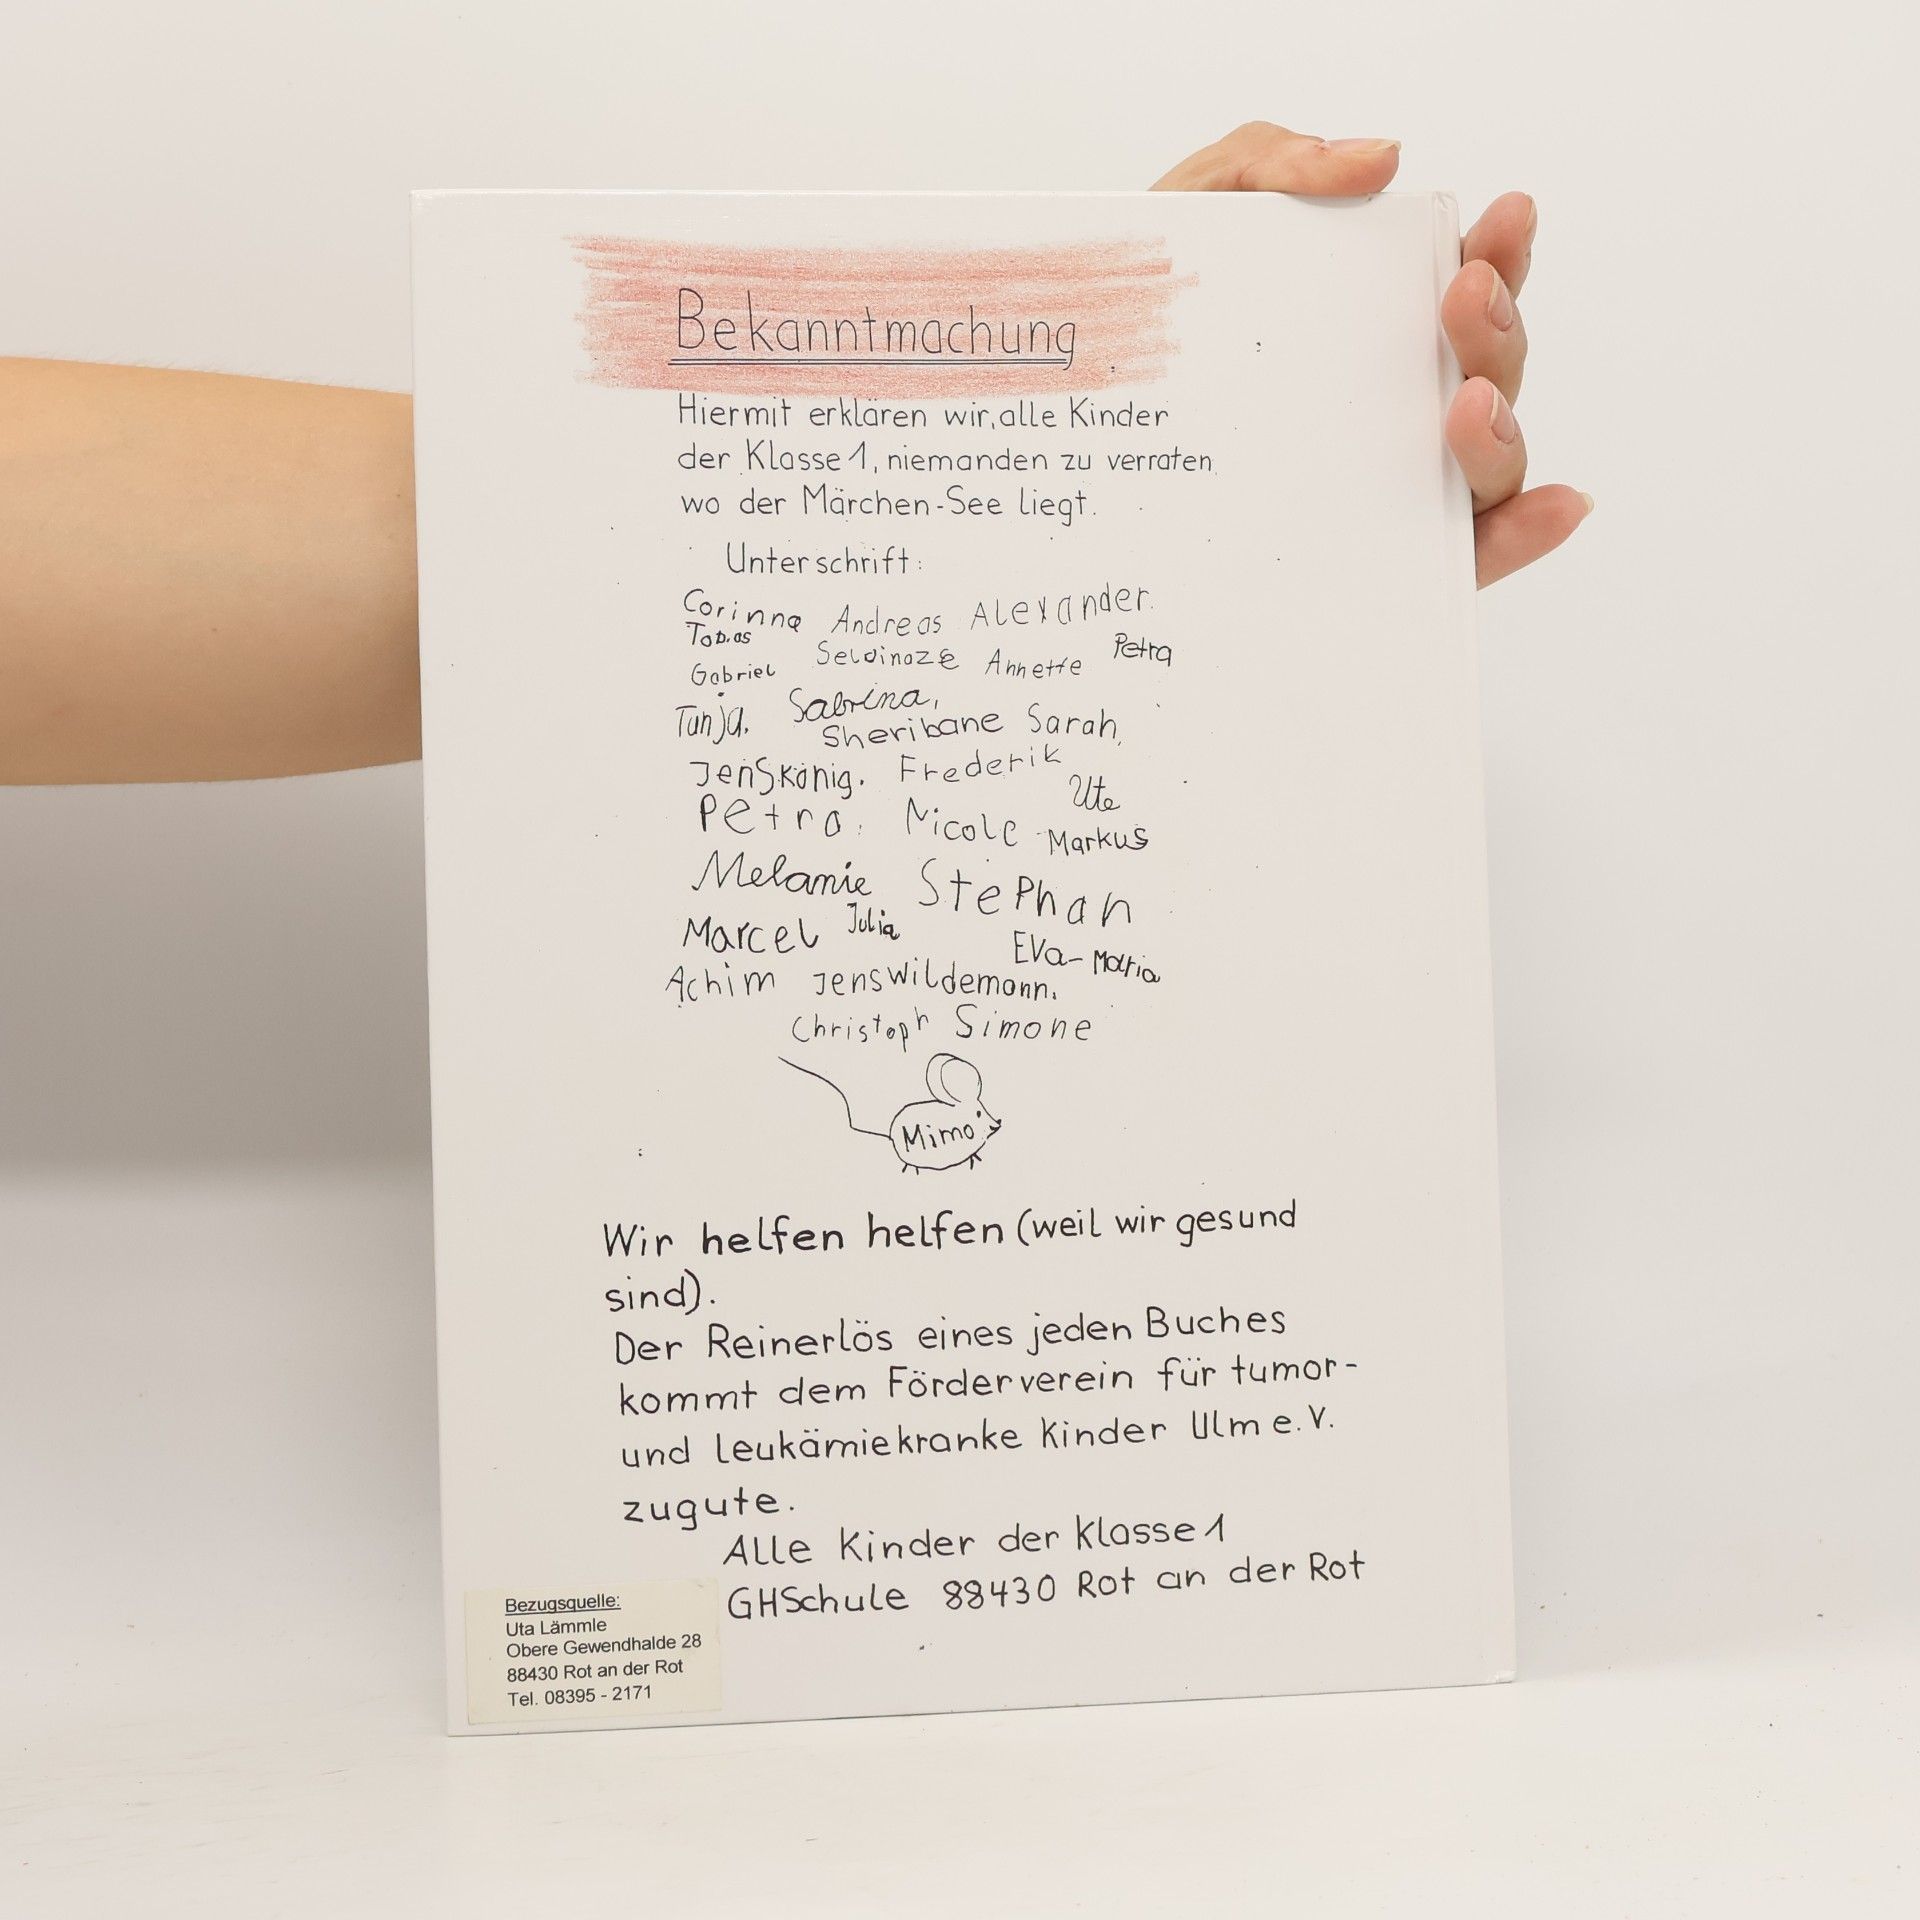 Bekanntmachung
Hiermit erklären wir, alle Kinder
der Klasse 1, niemanden zu verraten
wo der Märchen-See liegt.
Unterschrift:
Corinna Andreas Alexander.
Tobias
Gabriel Seldinaze Annette Petra
Tanja. Sabrina,
Sheribane Sarah,
Jens König. Frederik
Ute
Petra. Nicole Markus
Melanie Stephan
Marcel Julia
Eva-Maria
Achim Jens Wildemann.
Christoph Simone
Mimo
Wir helfen helfen (weil wir gesund
sind).
Der Reinerlös eines jeden Buches
kommt dem Förderverein für tumor-
und leukämiekranke Kinder Ulm e.V.
zugute.
Alle Kinder der Klasse 1
GHSchule 88430 Rot an der Rot
Bezugsquelle:
Uta Lämmle
Obere Gewendhalde 28
88430 Rot an der Rot
Tel. 08395 - 2171